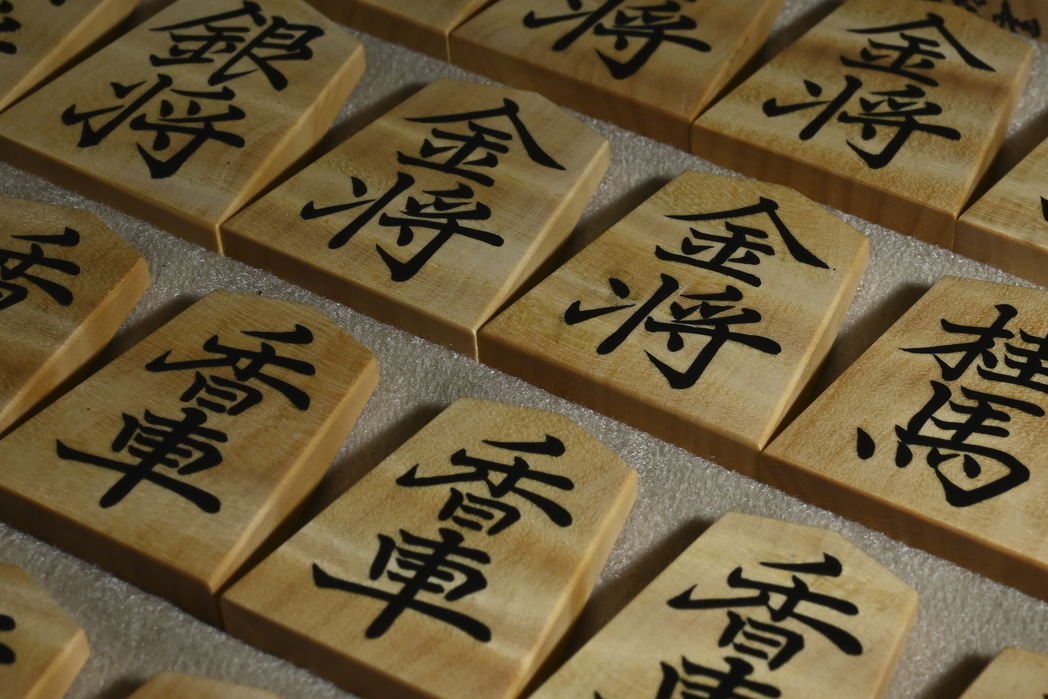 銀将
金将
金将
金将
桂馬
香車
香車
香車